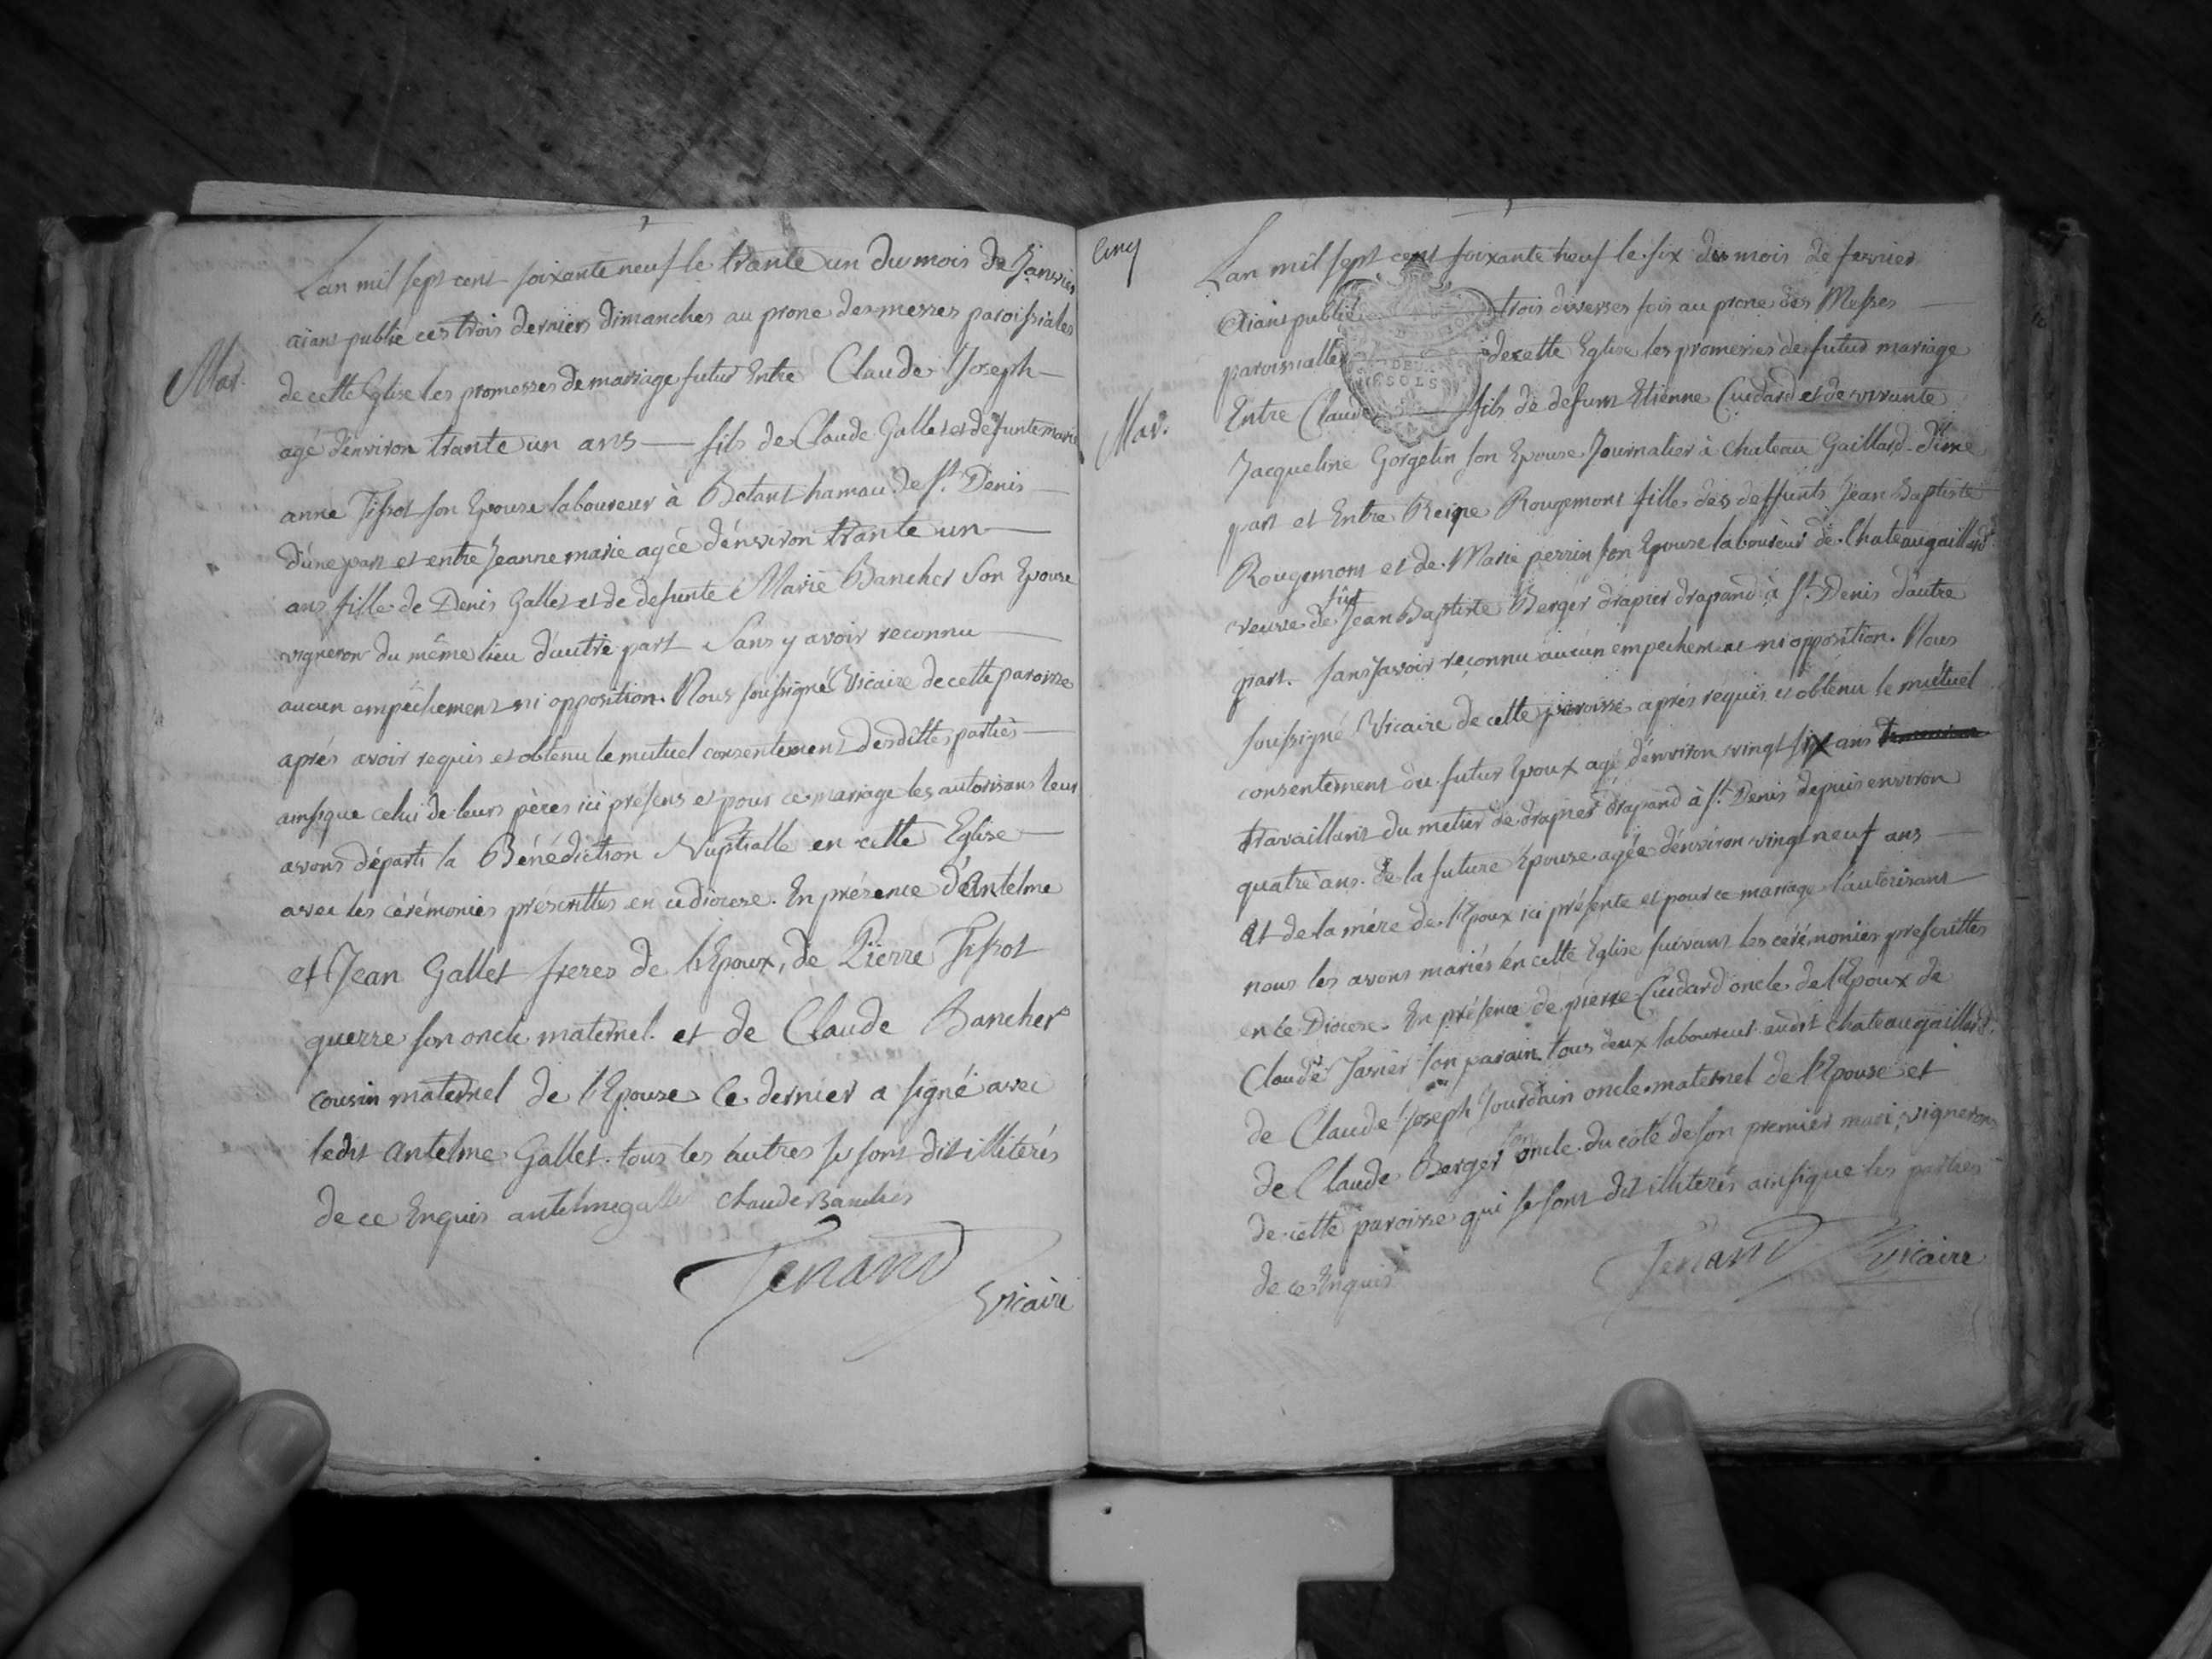 Mar.
Lan mil sept cent soixante neuf le trante un du mois de Janvier
aiant publie ces trois derniers dimanches au prone des messes paroissiales
de cette Eglise les promesses de mariage futur Entre Claude Joseph
agé d'environ trante un ans fils de Claude Gallet et defunte marie
anne Tissot son Epouse laboureur à Botant hamau de St. Denis
d'une part et entre Jeanne marie agée d'environ trante un
ans fille de Denis Gallet et de defunte Marie Bancher Son Epouse
vigneron du même lieu d'autre part Sans y avoir reconnu
aucun empêchement ni opposition. Nous soussigné Vicaire de cette paroisse
aprés avoir requis et obtenu le mutuel consentement desdittes parties
ainsique celui de leurs pères ici présens et pour ce mariage les autorisans leur
avons départi la Bénédiction Nuptialle en cette Eglise
avec les cérémonies préscrittes en ce diocese. En présence d'Antelme
et Jean Gallet freres de l'Epoux, de Pierre Tissot
guerre son oncle maternel. et de Claude Bancher
cousin maternel de l'Epouse Ce dernier a signé avec
ledit antelme Gallet. tous les autres se sont dit illiterés
de ce Enquis antelme galle Claude Bancher
Tenand
Vicaire
Cinq
Mar.
Lan mil sept cent soixante neuf le six du mois de fevrier
Aiant publié trois diverses fois au prone des Messes
paroissialles de cette Eglise les promesses de futur mariage
DEUX
SOLS
Entre Claude fils de defunt Etienne Cuidard et de vivante
Jacqueline Gorgelin son Epouse Journalier à Chateau Gaillard d'une
part et Entre Reine Rougemont fille des deffunts Jean Baptiste
Rougemont et de Marie perrin son Epouse laboureur de Chateaugaillard
veuve de fut Jean Baptiste Berger drapier drapand à St. Denis d'autre
part. sans y avoir reconnu aucun empechement ni opposition. Nous
soussigné Vicaire de cette paroisse aprés requis et obtenu le mutuel
consentement du futur Epoux agé d'environ vingt six ans
travaillant du metier de drapier drapand à St. Denis depuis environ
quatre ans. de la future Epouse agée d'environ vingt neuf ans
et de la mére de l'Epoux ici présente et pour ce mariage l'autorisant
nous les avons mariés en cette Eglise suivant les cérémonies prescrittes
en ce Diocese. En présence de pierre Cuidard oncle de l'Epoux de
Claude Janier son parain tous deux laboureur audit chateaugaillard.
de Claude Joseph Jourdain oncle maternel de l'Epouse et
de Claude Berger son oncle du coté de son premier mari, vignerons
de cette paroisse qui se sont dit illiterés ainsique les parties
de ce Enquis
Tenand Vicaire